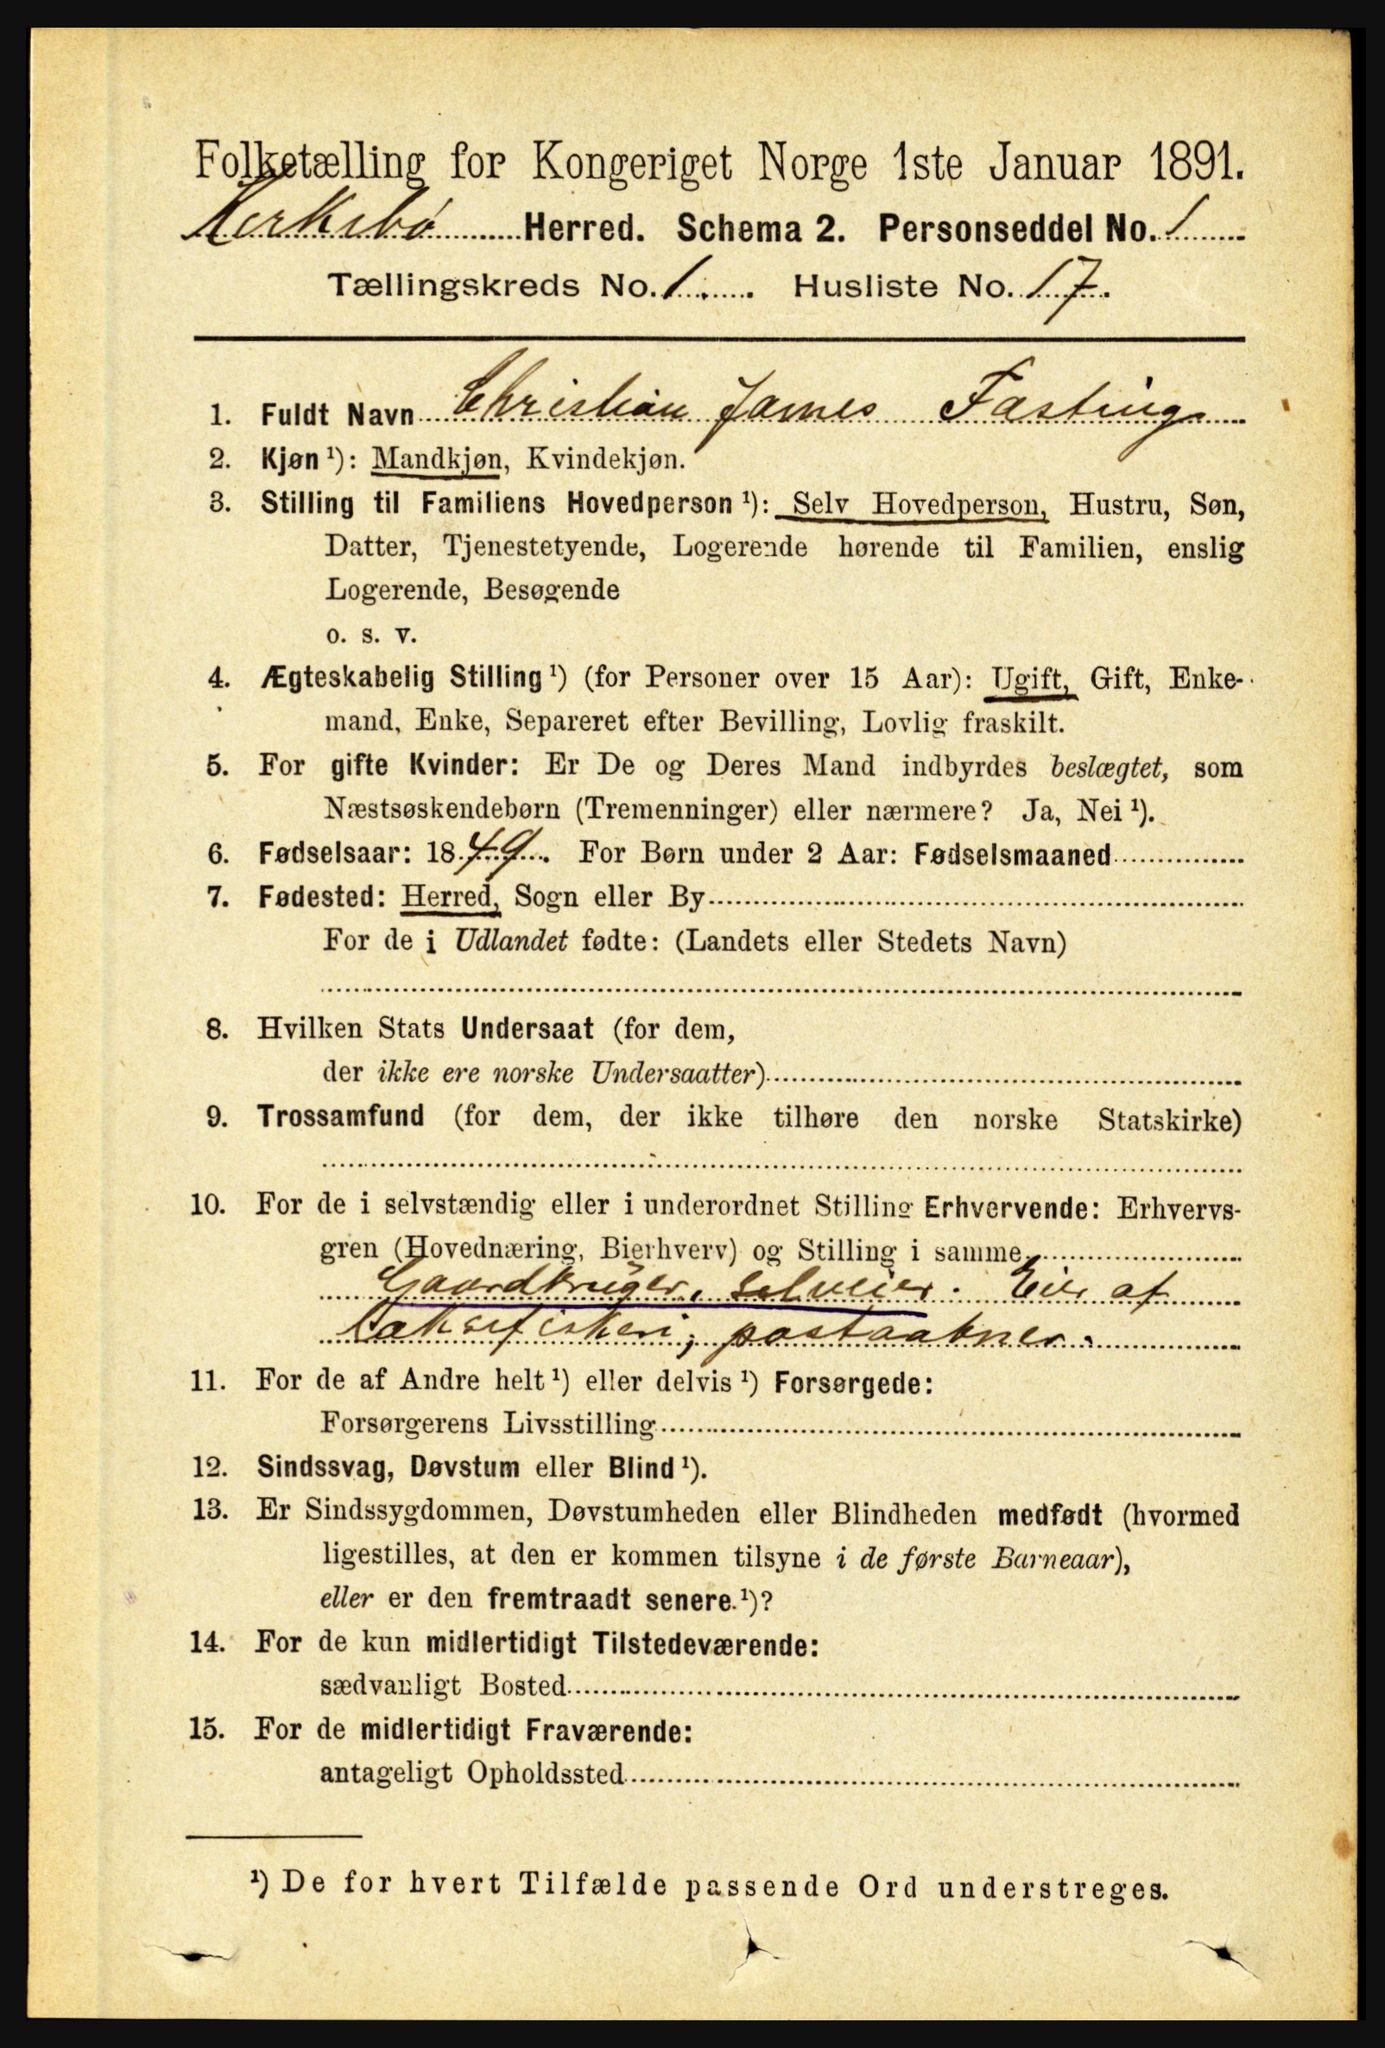 Folketælling for Kongeriget Norge 1ste Januar 1891.
Kirkebø Herred. Schema 2. Personseddel No. 1
Tællingskreds No. 1. Husliste No. 17.
1. Fuldt Navn Christian James Fasting.
2. Kjøn ¹): Mandkjøn, Kvindekjøn.
3. Stilling til Familiens Hovedperson ¹): Selv Hovedperson, Hustru, Søn,
Datter, Tjenestetyende, Logerende hørende til Familien, enslig
Logerende, Besøgende
o. s. v.
4. Ægteskabelig Stilling ¹) (for Personer over 15 Aar): Ugift, Gift, Enke-
mand, Enke, Separeret efter Bevilling, Lovlig fraskilt.
5. For gifte Kvinder: Er De og Deres Mand indbyrdes beslægtet, som
Næstsøskendebørn (Tremenninger) eller nærmere? Ja, Nei ¹).
6. Fødselsaar: 1849. For Børn under 2 Aar: Fødselsmaaned
7. Fødested: Herred, Sogn eller By
For de i Udlandet fødte: (Landets eller Stedets Navn)
8. Hvilken Stats Undersaat (for dem,
der ikke ere norske Undersaatter)
9. Trossamfund (for dem, der ikke tilhøre den norske Statskirke)
10. For de i selvstændig eller i underordnet Stilling Erhvervende: Erhvervs-
gren (Hovednæring, Bierhverv) og Stilling i samme
Gaardbruger, selveier. Eier af
laksefiskeri, postaabner.
11. For de af Andre helt ¹) eller delvis ¹) Forsørgede:
Forsørgerens Livsstilling
12. Sindssvag, Døvstum eller Blind ¹).
13. Er Sindssygdommen, Døvstumheden eller Blindheden medfødt (hvormed
ligestilles, at den er kommen tilsyne i de første Barneaar),
eller er den fremtraadt senere. ¹)?
14. For de kun midlertidigt Tilstedeværende:
sædvanligt Bosted
15. For de midlertidigt Fraværende:
antageligt Opholdssted
¹) De for hvert Tilfælde passende Ord understreges.